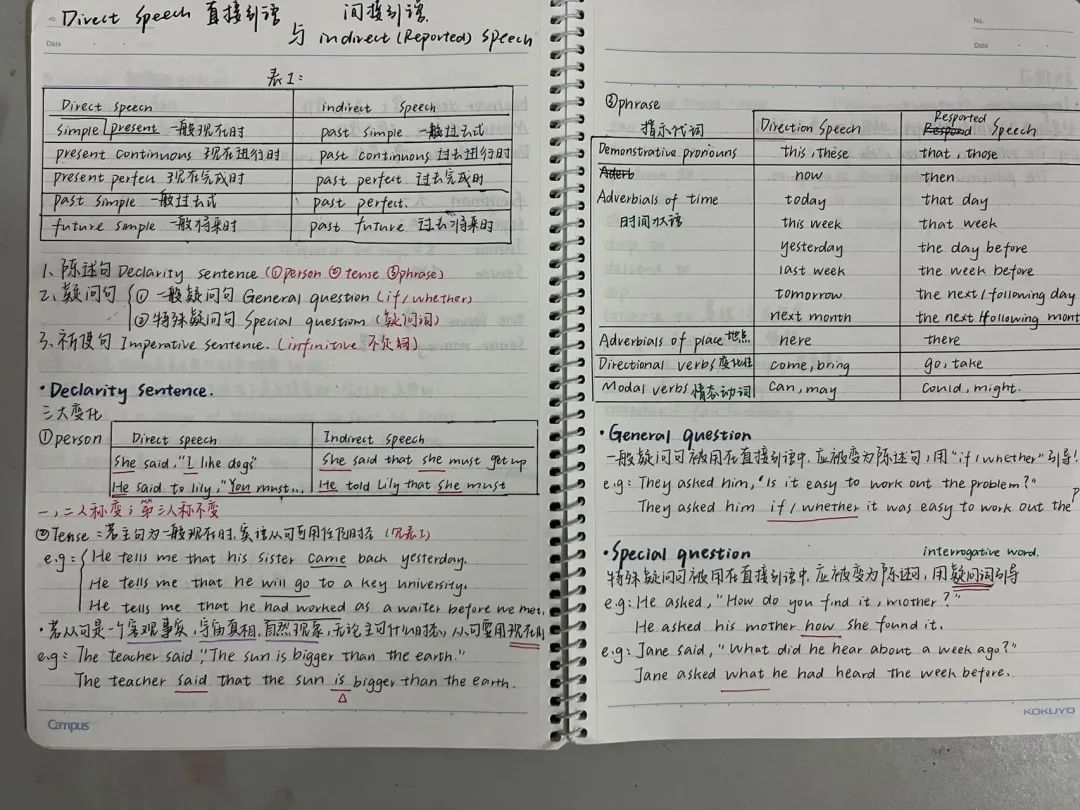 Direct Speech 直接引语 与 间接引语 indirect (Reported) Speech
Date
表1:
Direct speech | indirect speech
simple present 一般现在时 | past simple 一般过去式
present continuous 现在进行时 | past continuous 过去进行时
present perfect 现在完成时 | past perfect 过去完成时
past simple 一般过去式 | past perfect.
future simple 一般将来时 | past future 过去将来时
1、陈述句 Declarity sentence (①person ②tense ③phrase)
2、疑问句 ① 一般疑问句 General question (if/whether)
② 特殊疑问句 Special question (疑问词)
3、祈使句 Imperative sentence. (infinitive 不定词)
• Declarity Sentence.
三大变化
①person
Direct speech | Indirect speech
She said, "I like dogs" | She said that she must get up
He said to lily, "You must... | He told Lily that she must
一,二人称变；第三人称不变
②Tense：若主句为一般现在时,宾语从句可用任何时态 (见表1)
e.g: He tells me that his sister came back yesterday.
He tells me that he will go to a key university.
He tells me that he had worked as a waiter before we met.
• 若从句是一个客观事实,宇宙真相,自然现象,无论主句什么时态,从句要用现在时
e.g: The teacher said, "The sun is bigger than the earth."
The teacher said that the sun is bigger than the earth.
Campus
No.
Date
③phrase
指示代词 | Direction Speech | Resported Respond Speech
Demonstrative pronouns | this, these | that, those
Aderb | now | then
Adverbials of time | today | that day
时间状语 | this week | that week
yesterday | the day before
last week | the week before
tomorrow | the next / following day
next month | the next / following mont
Adverbials of place 地点 | here | there
Directional verbs 变化性 | come, bring | go, take
Modal verbs 情态动词 | can, may | Could, might.
• General question
一般疑问句被用在直接引语中,应被变为陈述句,用"if / whether"引导!
e.g: They asked him, "Is it easy to work out the problem?"
They asked him if / whether it was easy to work out the p
• Special question interrogative word.
特殊疑问句被用在直接引语中,应被变为陈述词,用疑问词引导
e.g: He asked, "How do you find it, mother?"
He asked his mother how she found it.
e.g: Jane said, "What did he hear about a week ago?"
Jane asked what he had heard the week before.
KOKUYO